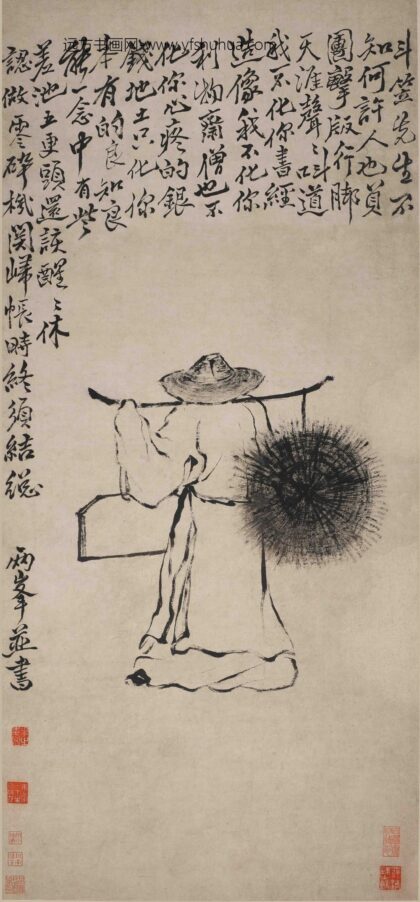 远方书画网 www.yfshuhua.com
斗笠先生不
知何許人也負
團擊版行脚
天涯聲〻叫道
我不化你書經
造像我不化你
利物齋僧也不
化你心疼的銀
錢地土只化你
本有的良知良
能一念中有些
差池五更頭還該醒〻休
認做零碎機関帳時終須結總
兩峯並書